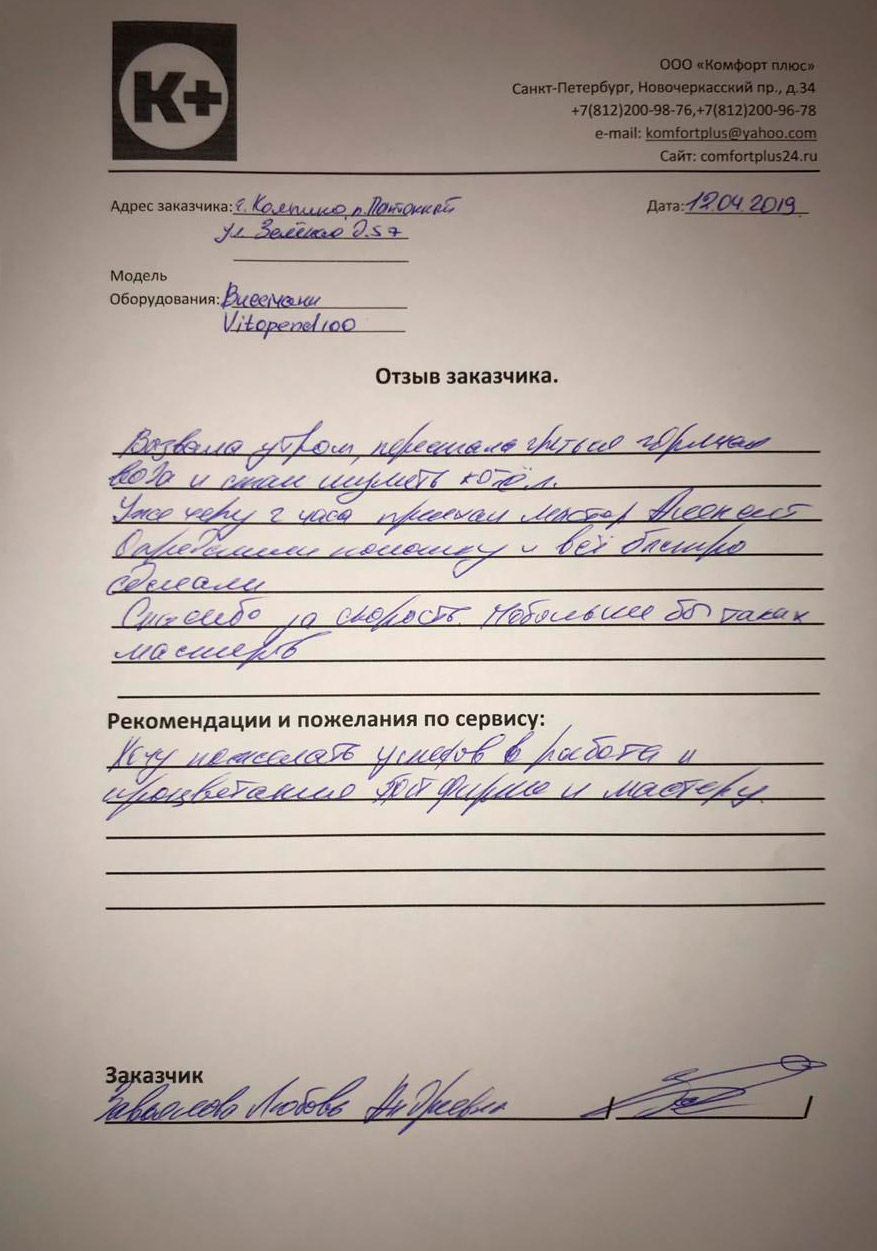 K+
ООО «Комфорт плюс»
Санкт-Петербург, Новочеркасский пр., д.34
+7(812)200-98-76,+7(812)200-96-78
e-mail: komfortplus@yahoo.com
Сайт: comfortplus24.ru
Адрес заказчика: г. Колпино, п. Понтонный
Дата: 12.04.2019
ул. Зелёная д.57
Модель
Оборудования: Виессманн
Vitopend 100
Отзыв заказчика.
Вызвала утром, перестала греться горячая
вода и стал шуметь котёл.
Уже через 2 часа приехал мастер
Определили поломку и всё быстро
сделали
Спасибо за скорость. Побольше бы таких
мастеров
Рекомендации и пожелания по сервису:
Хочу пожелать успехов в работа и
процветание этой фирме и мастеру.
Заказчик
Завьялова Любовь Андреевна